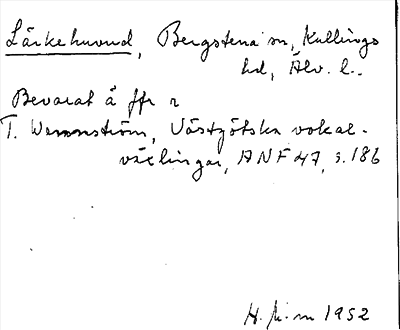 Lärkehuvud, Bergstena sn, Kullings
hd, Älv. l.
Bevarat å ffr r
T. Wennström, Västgötska vokal-
växlingar, ANF 47, s. 186
1952